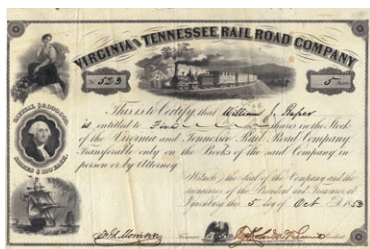 VIRGINIA AND TENNESSEE RAIL ROAD COMPANY
No 523
5
This is to Certify that William J.
is entitled to Five shares in the Stock
of the Virginia and Tennessee Rail Road Company,
Transferable only on the Books of the said Company in
person or by Attorney
Witness, the seal of the Company and the
signatures of the President and Treasurer at
Lynchburg this 5 day of Oct 1853